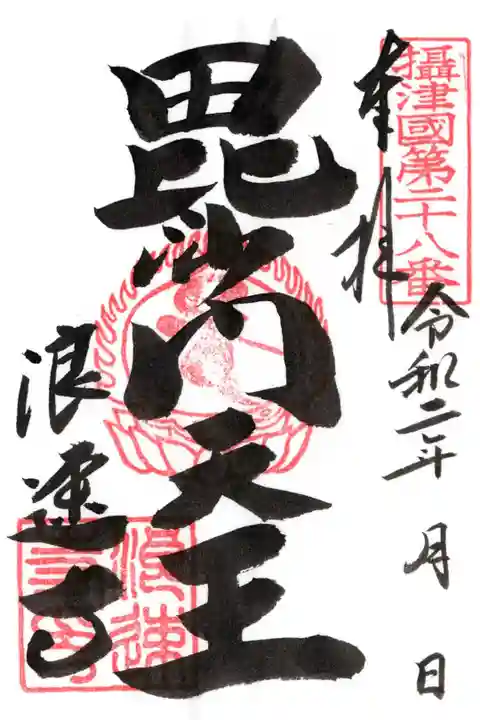 攝津國第二十八番
奉拝
令和二年 月 日
毘沙門天王
浪速寺
浪速寺